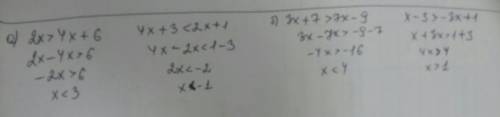 a) 2x>4x+6
2x-4x>6
-2x>6
x<3
4x+3<2x+1
4x-2x<1-3
2x<-2
x<-1
2) 3x+7>7x-9
3x-7x>-9-7
-4x>-16
x<4
x-3>-3x+1
x+3x>1+3
4x>4
x>1